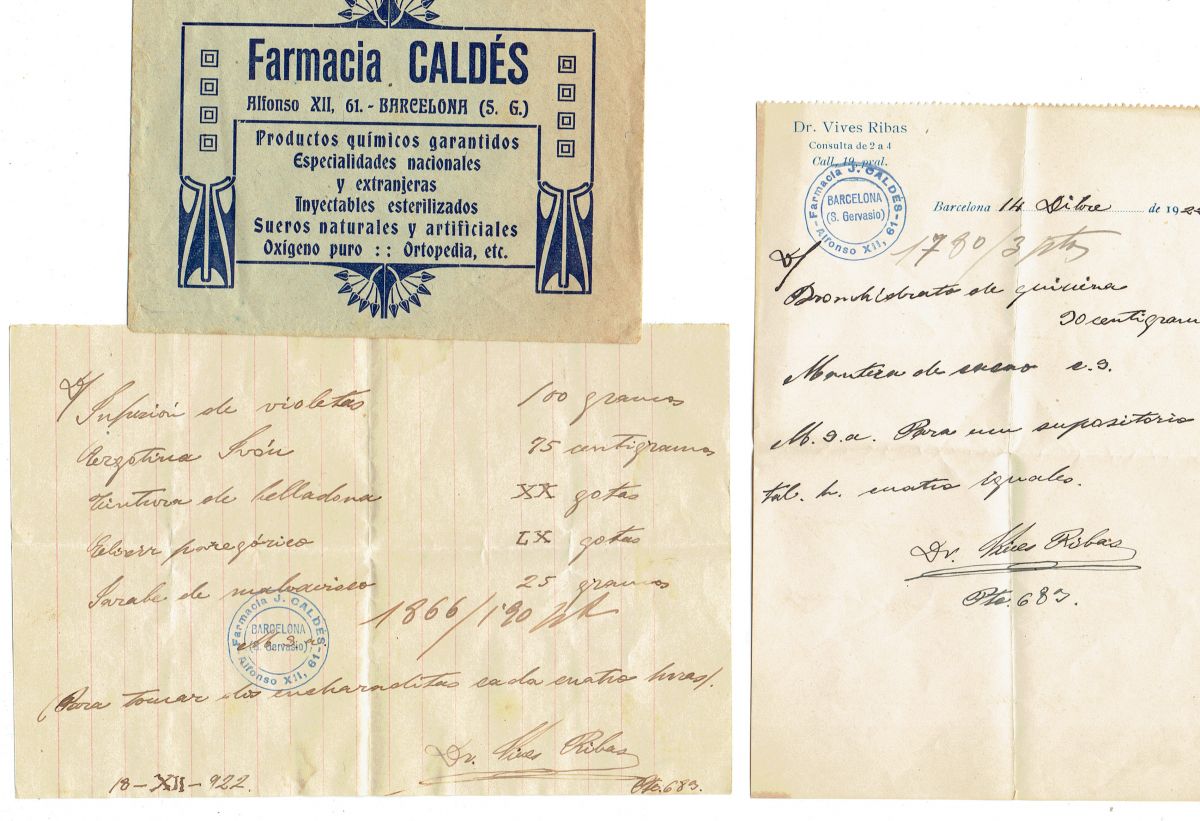 Farmacia CALDÉS
Alfonso XII, 61.- BARCELONA (S. G.)
Productos químicos garantidos
Especialidades nacionales
y extranjeras
Inyectables esterilizados
Sueros naturales y artificiales
Oxígeno puro :: Ortopedia, etc.
Infusión de violetas 100 gramos
Ergotina Ivón 75 centigramos
Tintura de belladona XX gotas
Elixir paregórico LX gotas
Jarabe de malvavisco 25 gramos
1866/1'90
Farmacia J. CALDÉS
BARCELONA
(S. Gervasio)
Alfonso XII, 61
(Para tomar dos cucharaditas cada cuatro horas).
Dr. Vives Ribas
18-XII-922. Pte. 683.
Dr. Vives Ribas
Consulta de 2 a 4
Call, 19, pral.
Farmacia J. CALDÉS
BARCELONA
(S. Gervasio)
Alfonso XII, 61
Barcelona 14 Dibre de 19
1780/3 pts
Bromhidrato de quinina
centigram
Manteca de cacao c.s.
M. s. a. Para un supositorio
tal. h. cuatro iguales.
Dr. Vives Ribas
Pte. 683.